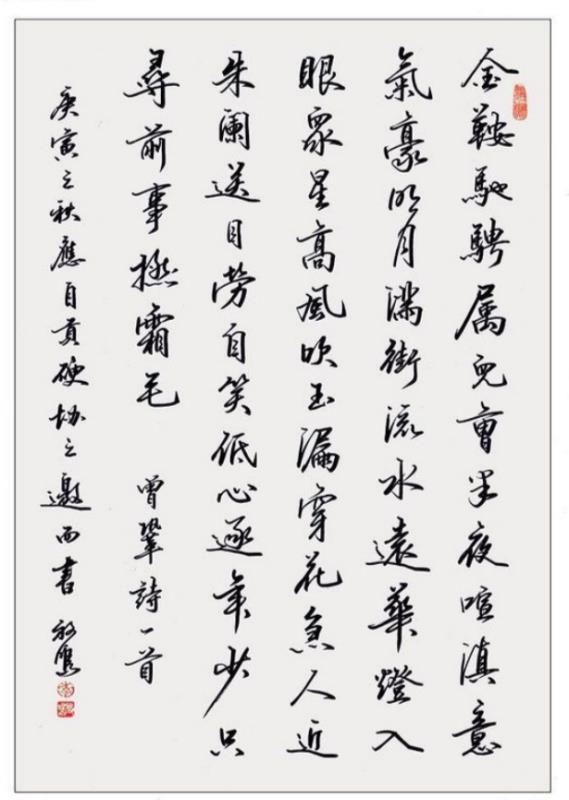 金鞍馳騁属兒曹半夜喧滇意
氣豪明月滿街流水遠華燈入
眼眾星高風吹玉漏穿花急人近
朱闌送目勞自笑低心逐年少只
尋前事撚霜毛 曾鞏詩一首
庚寅之秋應自貢硬协之邀而書